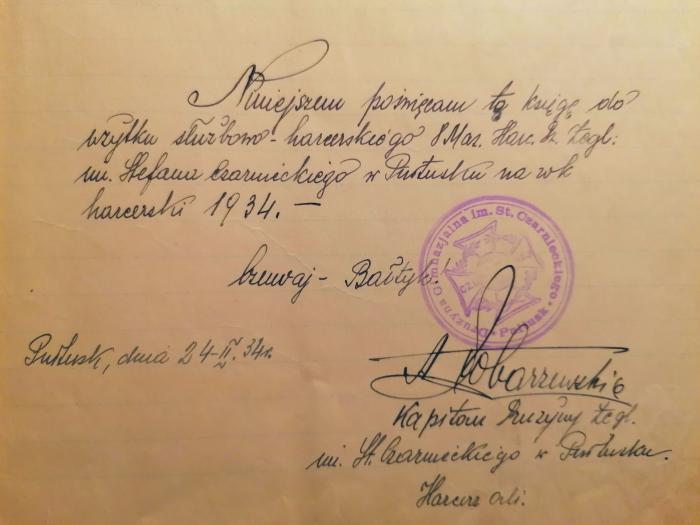 Niniejszem poświęcam tą księgę do
użytku służbowo-harcerskiego 8 Maz. Harc. Dr. Żegl.
im. Stefana Czarnieckiego w Pułtusku na rok
harcerski 1934. —
Czuwaj - Bałtyk!
Drużyna Gimnazjalna im. St. Czarnieckiego • Pułtusk •
Pułtusk, dnia 24-II.34r.
Kapitan Drużyny Żegl.
im. St. Czarnieckiego w Pułtusku.
Harcerz Orli.